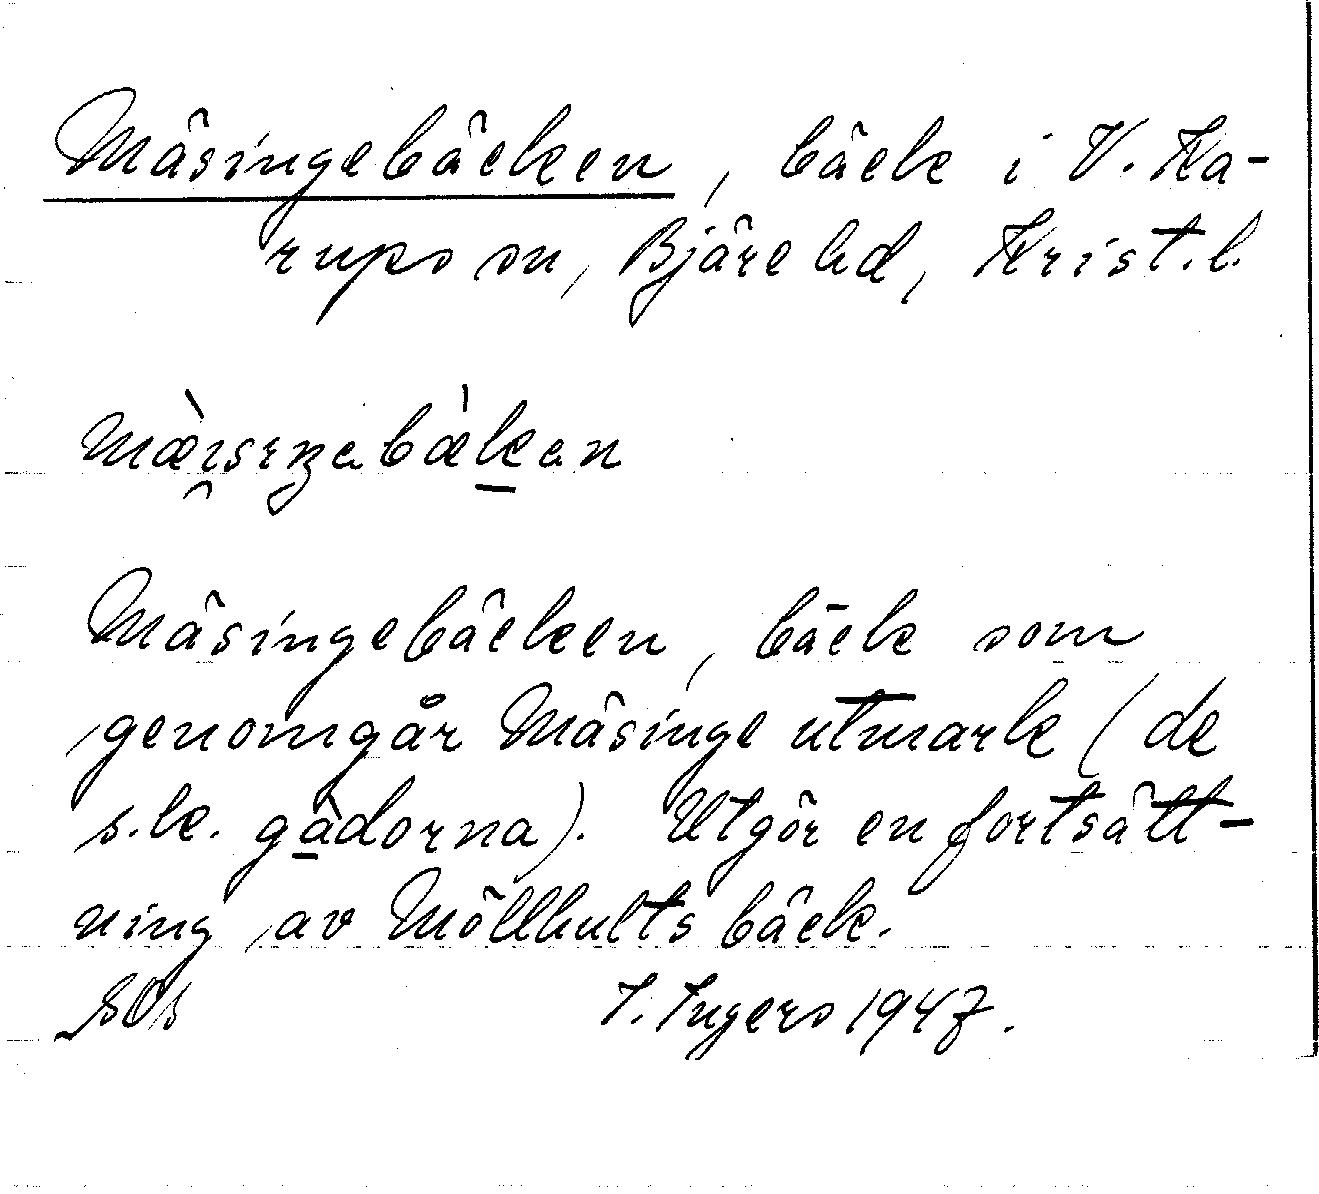 Mäsingebäcken, bäck i V. Ka-
rups sn, Bjäre hd, Krist. l.
Mäsingebäcken, bäck som
genomgår Mäsinge utmark (de
s.k. gàdorna). Utgör en fortsätt-
ning av Möllhults bäck.
I. Ingers 1947.